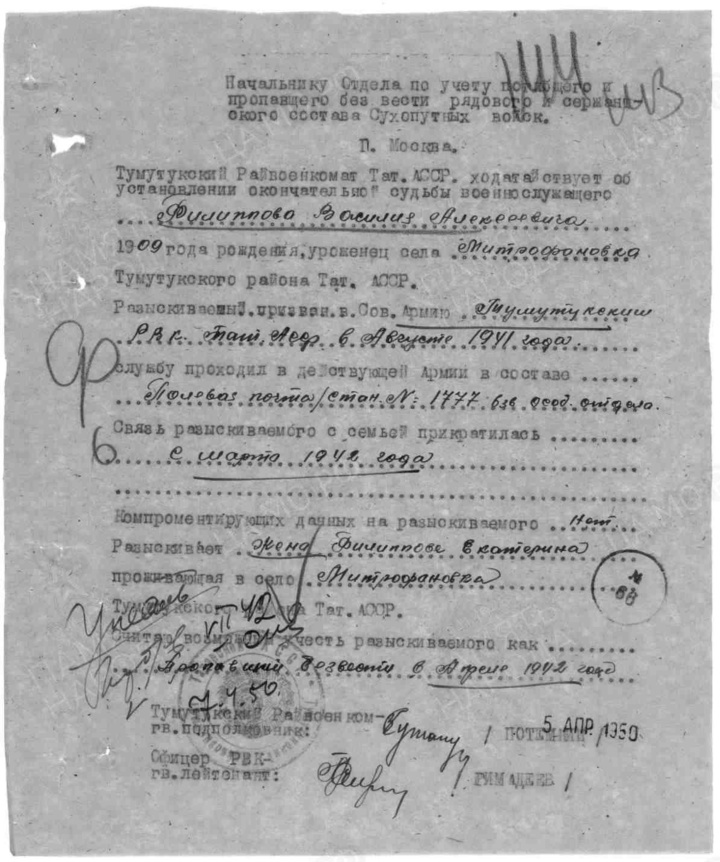 Начальнику Отдела по учету погибшего и
пропавшего без вести рядового и сержант-
ского состава Сухопутных войск.
П. Москва.
Тумутукский Райвоенкомат Тат. АССР. ходатайствует об
установлении окончательной судьбы военнослужащего
Филиппова Василия Алексеевича
1909 года рождения, уроженец села Митрофановка
Тумутукского района Тат. АССР.
Разыскиваемый призван в Сов. Армию Тумутукским
РВк. Тат. Асср. в Августе 1941 года.
службу проходил в действующей Армии в составе
Полевая почта/стан. № 1777 взв особ. отдела.
Связь разыскиваемого с семьей прикратилась
с марта 1942 года
Компроментирующих данных на разыскиваемого Нет.
Разыскивает Жена Филиппова Екатерина
проживающая в село Митрофановка
Тумутукского района Тат. АССР.
VII 42
Считаю возможным учесть разыскиваемого как
Пропавший безвести в Апреле 1942 года
7.4.50.
Тумутукский Райвоенком-
гв.подполковник: / /
5 АПР 1950
Офицер РВК-
гв.лейтенант: / ГИМАДЕЕВ /